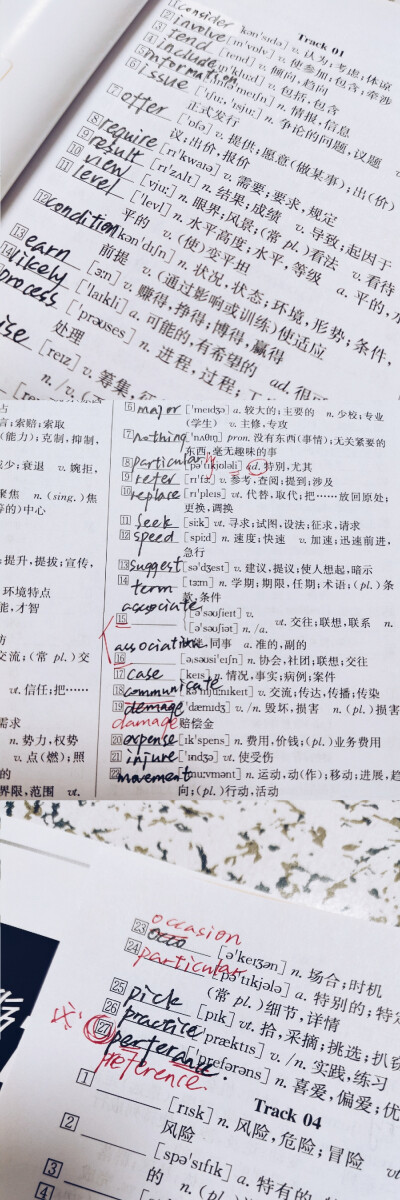 Track 01
1 consider kən'sɪdə] v. 认为;考虑;体谅
2 involve [ɪn'vɒlv] v. 使参加;包含;牵涉
3 tend [tend] v. 倾向,趋向
4 include ɪn'kluːd] v. 包括,包含
5 information ɪnfə'meɪʃn] n. 情报;信息
6 issue ['ɪʃuː,'ɪsjuː] n. 争论的问题,议题 v.
正式发行
7 offer ['ɒfə] v. 提供;愿意(做某事);出(价)
议;出价,报价
8 require [rɪ'kwaɪə] v. 需要;要求,规定
9 result [rɪ'zʌlt] n. 结果;成绩 v. 导致;起因于
10 view [vjuː] n. 眼界;风景;(常 pl.)看法 v. 看待
11 level ['levl] n. 水平高度;水平,等级 a. 平的,水
平的 v. (使)变平坦
12 condition kən'dɪʃn] n. 状况,状态;环境,形势;条件,
前提 v. (通过影响或训练)使适应
13 earn [ɜːn] v. 赚得,挣得;博得,赢得
14 likely ['laɪkli] a. 可能的,有希望的 ad. 很可
process ['prəʊses] n. 进程,过程;工
处理
ise [reɪz] v. 筹集,征
n./v.
言;索赔;索取
(能力);克制,抑制,
减少;衰退 v. 婉拒,
聚焦 n. (sing.)焦
等的)中心
提升,提拔;宣传,
环境特点
能,才智
交流;(常 pl.)交
vt. 信任;把……
需求
n. 势力,权势
v. 点(燃);照
的
界限,范围 vt.
6 major ['meɪdʒə] a. 较大的;主要的 n. 少校;专业
(学生) v. 主修,专攻
7 nothing 'nʌθɪŋ] pron. 没有东西(事情);无关紧要的
东西,毫无趣味的事
8 particularly pə'tɪkjələli] ad. 特别,尤其
9 refer [rɪ'fɜː] v. 参考,查阅;提到;涉及
10 replace [rɪ'pleɪs] vt. 代替,取代;把……放回原处;
更换,调换
11 seek [siːk] vt. 寻求;试图,设法;征求,请求
12 speed [spiːd] n. 速度;快速 v. 加速;迅速前进,
急行
13 suggest [sə'dʒest] v. 建议,提议;使人想起,暗示
14 term [tɜːm] n. 学期;期限,任期;术语;(pl.)条
款,条件
associate
15 [ə'səʊʃieɪt] v.
[ə'səʊʃiət] n./a. vt. 交往;联想,联系 n.
伙伴,同事 a. 准的,副的
association
16 ə,səʊsi'eɪʃn] n. 协会,社团;联想;交往
17 case [keɪs] n. 情况,事实;病例;案件
18 communicate kə'mjuːnɪkeɪt] v. 交流;传达,传播;传染
19 demage 'dæmɪdʒ] v./n. 毁坏,损害 n. (pl.)损害
damage 赔偿金
20 expense [ɪk'spens] n. 费用,价钱;(pl.)业务费用
21 injure ['ɪndʒə] vt. 使受伤
22 movement ['muːvmənt] n. 运动,动(作);移动;进展,趋
向;(pl.)行动,活动
occasion
23 occo [ə'keɪʒən] n. 场合;时机
24 particular [pə'tɪkjələ] a. 特别的;特定
(常 pl.)细节,详情
25 pick [pɪk] vt. 拾,采摘;挑选;扒窃
26 practice [præktɪs] v./n. 实践,练习
27 perferance. ['prefərəns] n. 喜爱,偏爱;优
preference
Track 04
1 [rɪsk] n. 风险,危险;冒险 vt
风险
2 [spə'sɪfɪk] a. 特有的;特
3 的 n. (pl.)
4